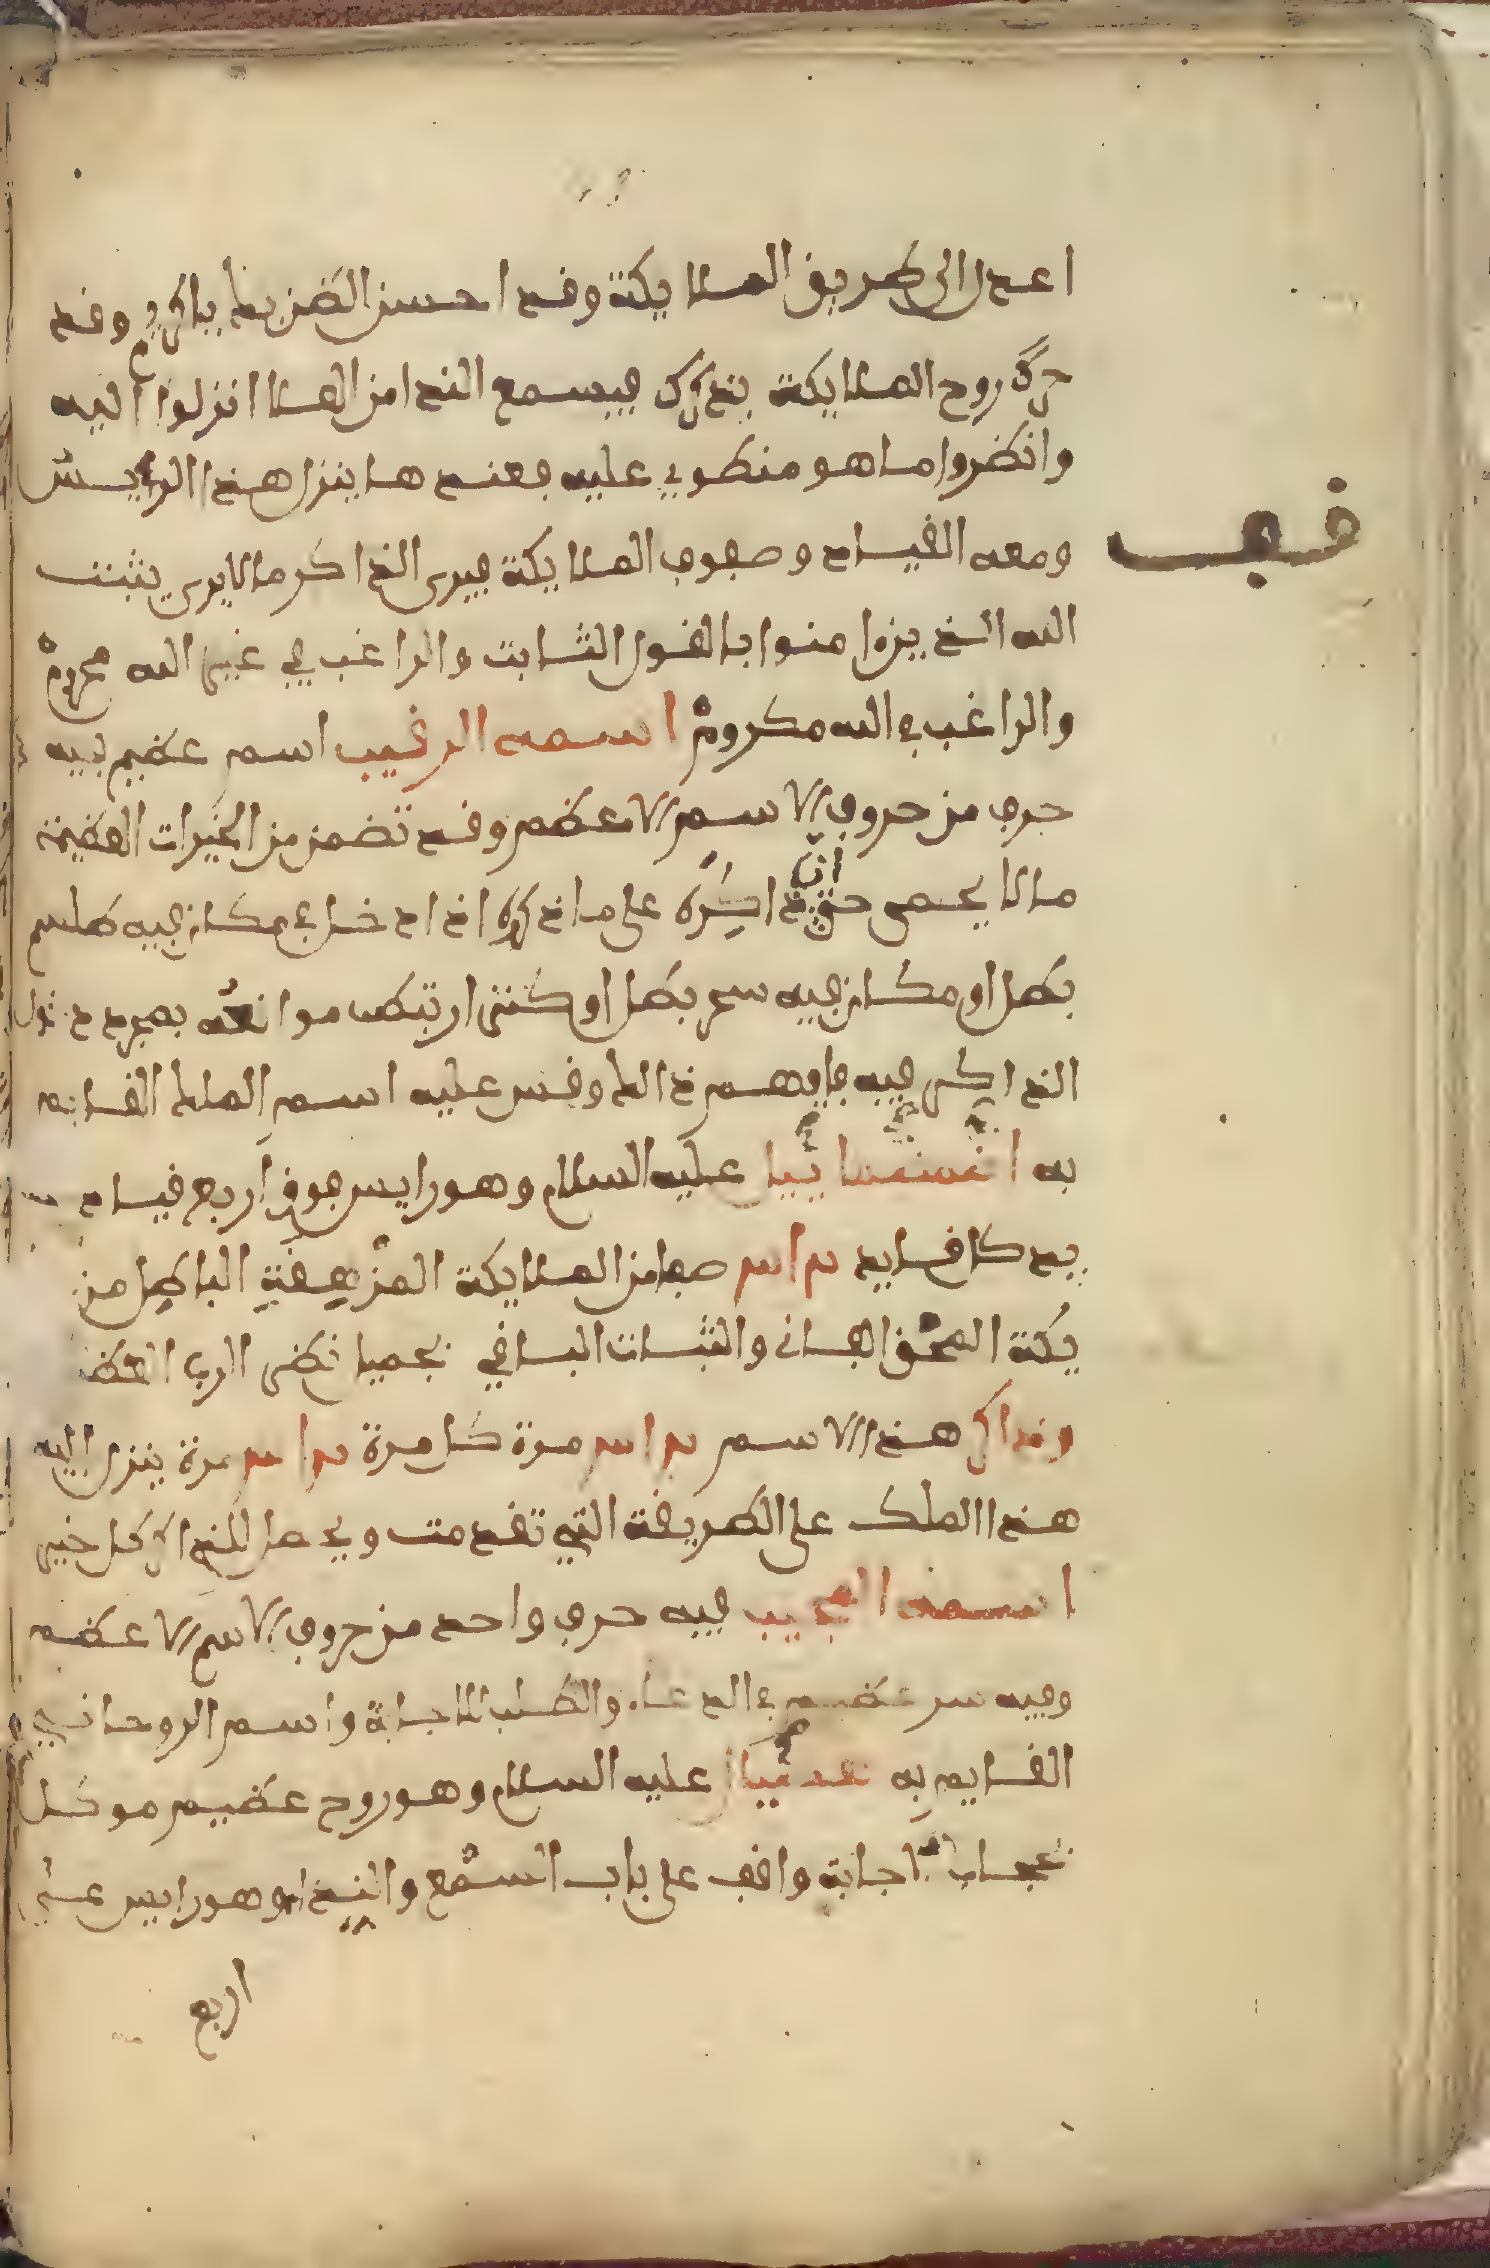 اعدل الى طريق الملايكة وقد احسن الظن بك يا رب وقد
حرك روح الملايكة بذكرك فيسمع الندا من الملا انزلوا اليه
وانظروا ما هو منطوي عليه فعند ها ينزل هذا الرايس
فف
ومعه القيام وصفوف الملايكة فيرى الذاكر ما لا يرى يثبت
الله الذين امنوا بالقول الثابت والراغب في غير الله محروم
والراغب في الله مكروم اسمه الرقيب اسم عظيم فيه
حرف من حروف الاسم الاعظم وقد تضمن من الخيرات العظيمة
ما لا يحصى حتى ان اسره على ما ذكره اذا دخل في مكان فيه طلسم
بطل او مكان فيه سحر بطل او كنز ارتبطت موانعه بمجرد دخول
الذاكر فيه فافهم ذالك وقس عليه اسم الملك القايم
به عليه السلام وهو رايس فوق اربع قيام
بيد كل قايد صفا من الملايكة المزهقة الباطل من
يكة المحق الفاني والثبات الباقي نحميا نظر الرب العظ
وذاكر هذا الاسم مرة كل مرة مرة ينزل اليه
هذا الملك على الطريقة التي تقدمت ويحصل للذاكر كل خير
اسمه المجيب فيه حرف واحد من حروف الاسم الاعظم
وفيه سر عظيم في الدعاء والطلب للاجابة واسم الروحاني
القايم به عليه السلام وهو روح عظيم موكل
اجابة واقف على باب السمع والندا وهو رايس على
اربع